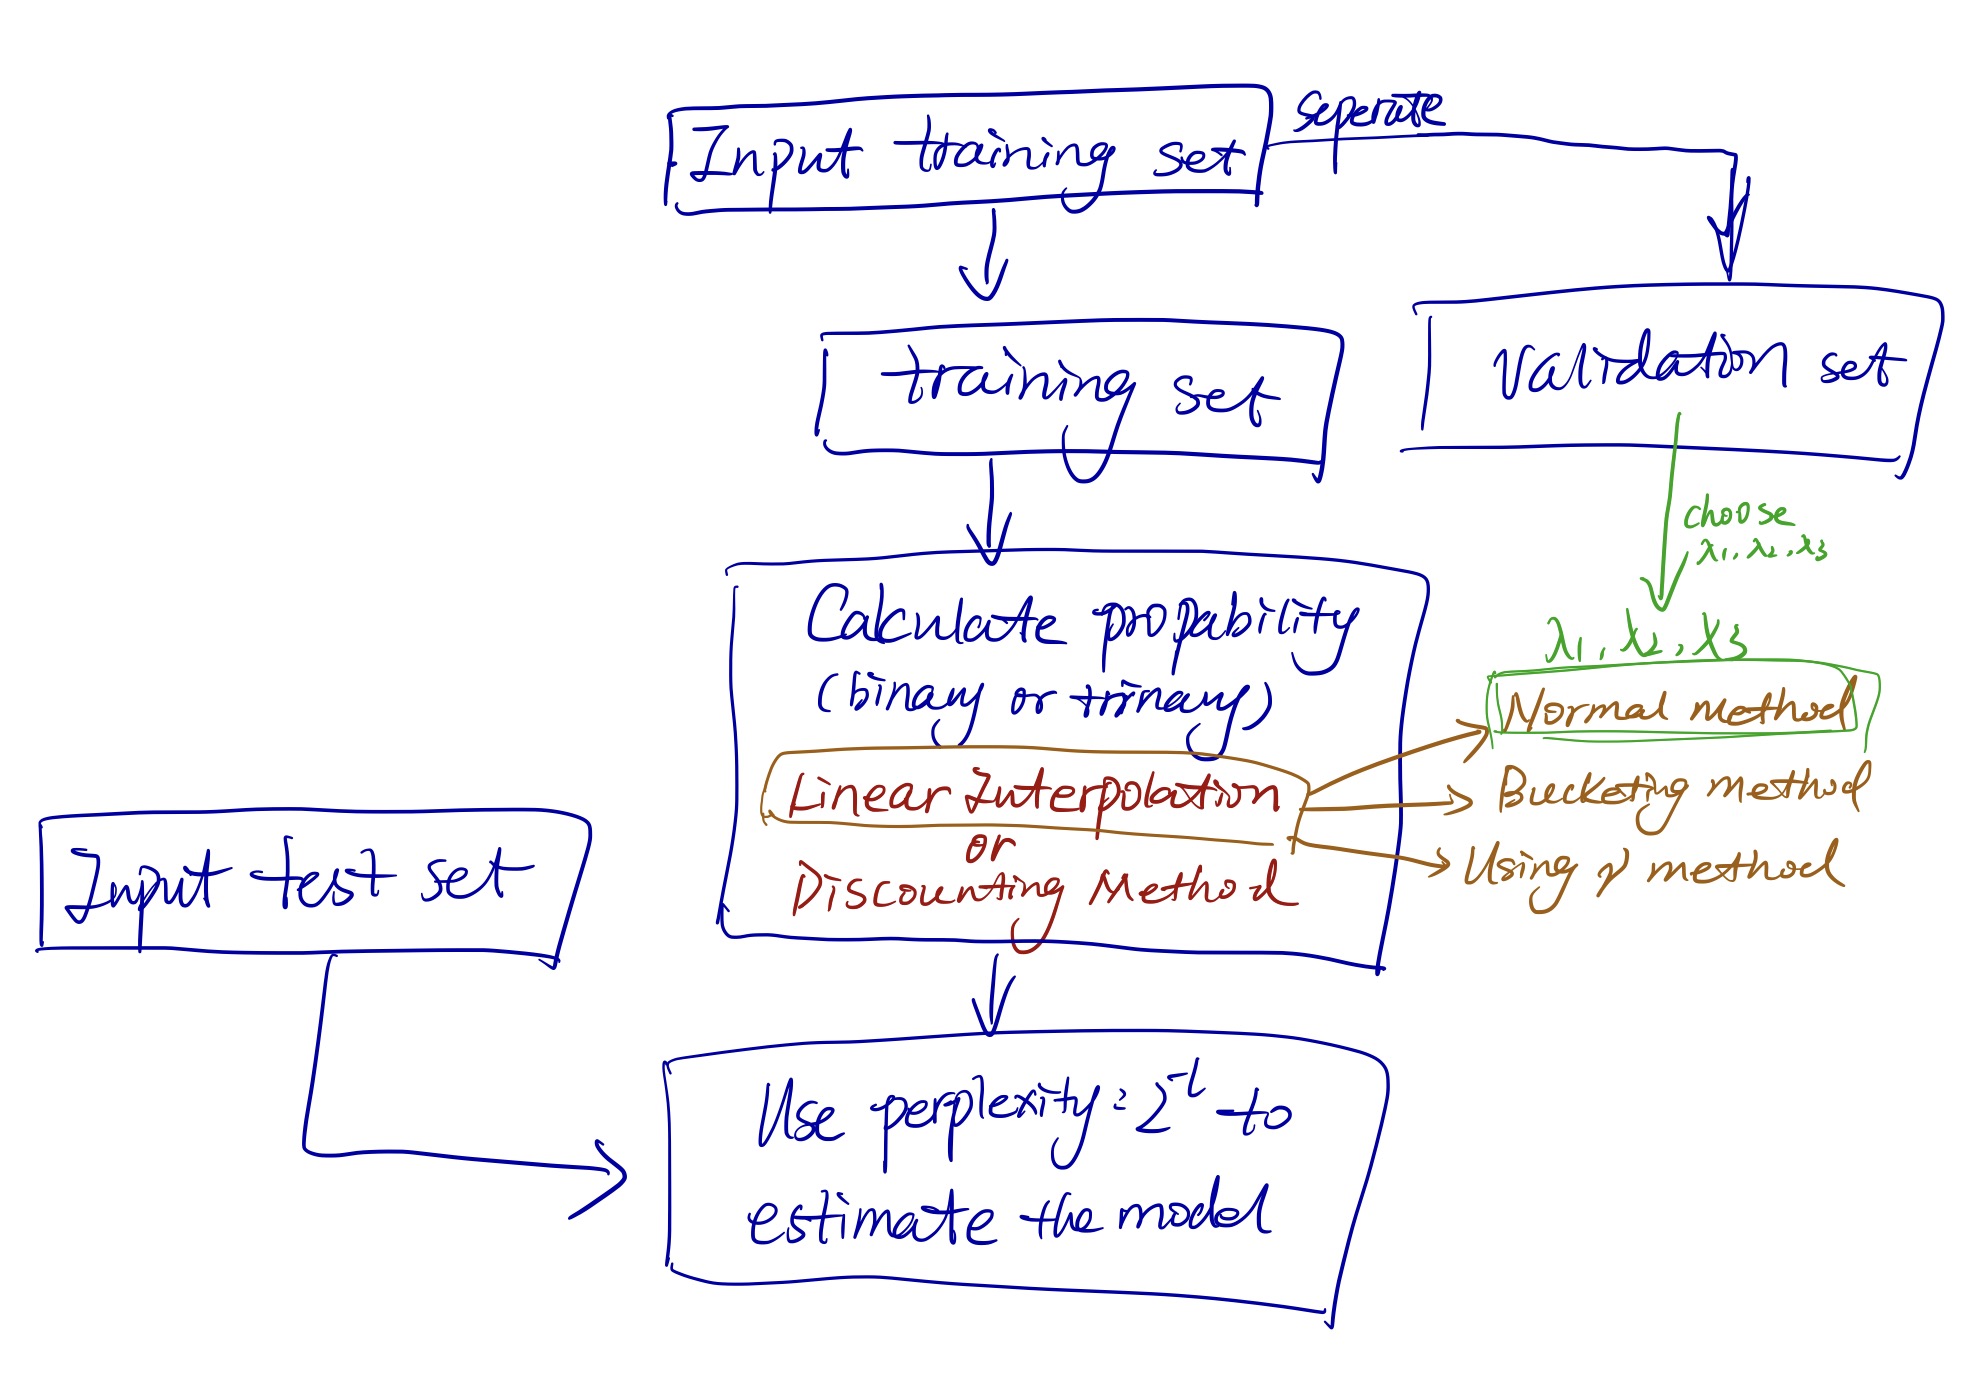 Input training set
seperate
training set
Validation set
choose
λ1, λ2, λ3
λ1, λ2, λ3
Calculate propability
(binary or trinary)
Linear Interpolation
or
Discounting Method
Normal method
Bucketing method
Using γ method
Input test set
Use perplexity: 2^-l to
estimate the model